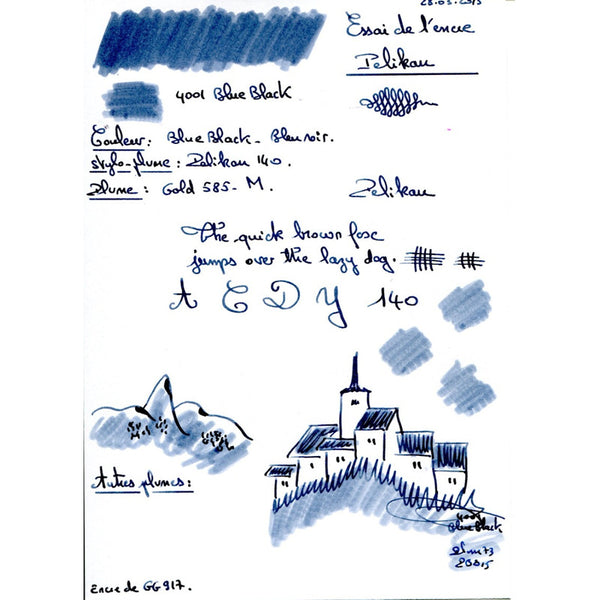 28.03.2015
Essai de l'encre
Pelikan
4001 Blue Black
Couleur: Blue Black - Bleu noir.
Stylo-plume: Pelikan 140.
Plume: Gold 585 - M.
Pelikan
The quick brown fox
jumps over the lazy dog.
A C D Y 140
Autres plumes:
4001
Blue Black
Encre de GG917.